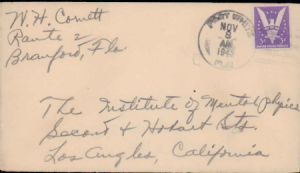 W. H. Cornett
Route 2
Branford, Fla
FORT WHITE
NOV
8
AM
1943
FLA.
The Institute of Mentalphysics
Second & Hobart Sts.
Los Angles, California